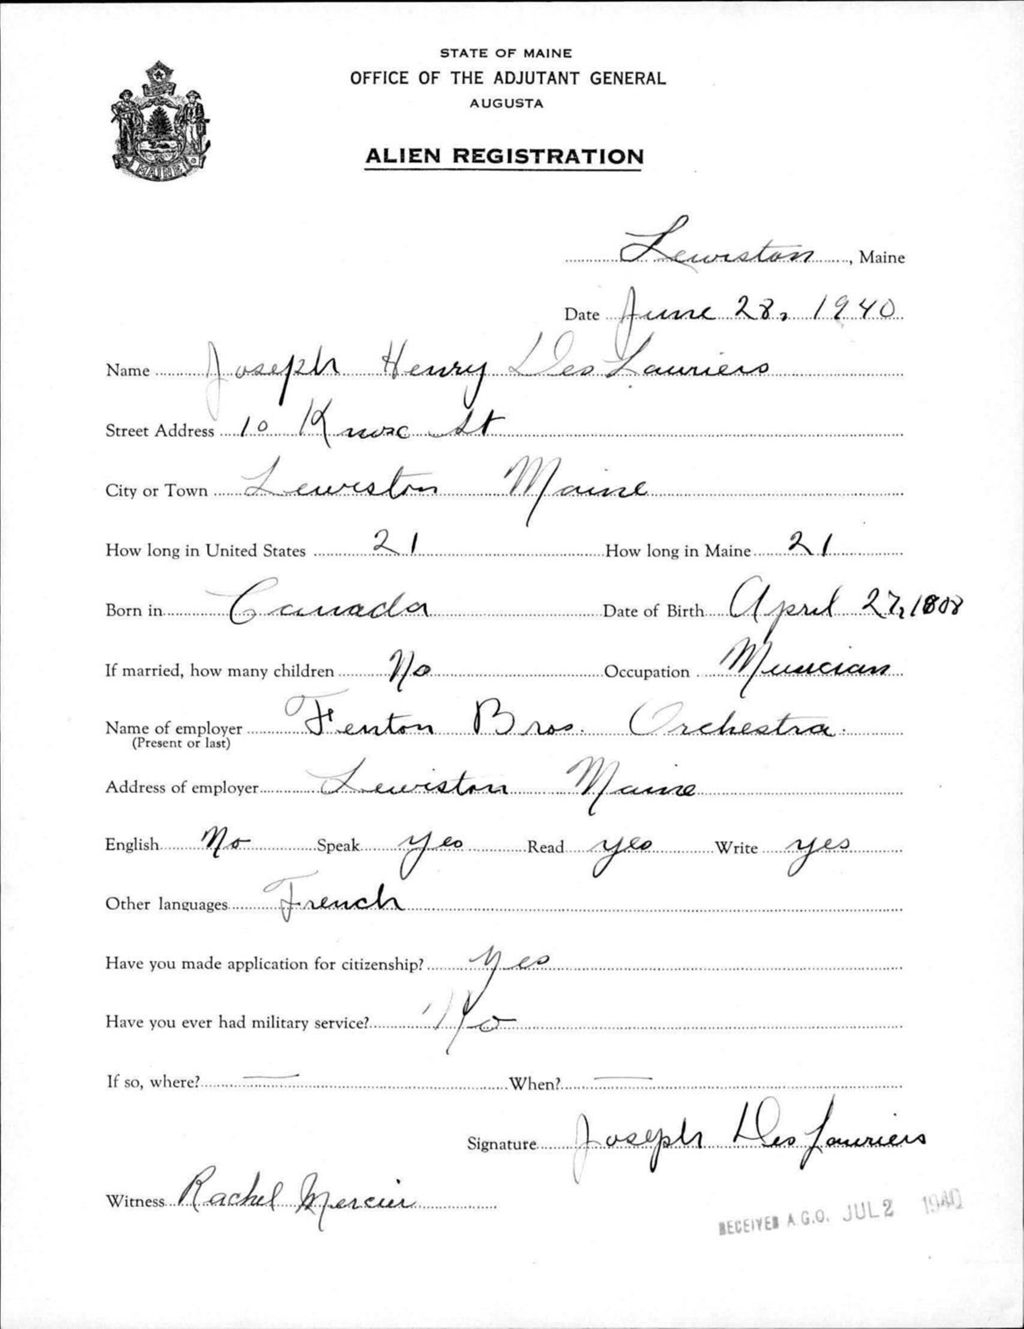 STATE OF MAINE
OFFICE OF THE ADJUTANT GENERAL
AUGUSTA
MAINE
ALIEN REGISTRATION
Lewiston, Maine
Date June 28, 1940
Name Joseph Henry DesLauriers
Street Address 10 Knox St
City or Town Lewiston Maine
How long in United States 21 How long in Maine 21
Born in Canada Date of Birth April 27, 1908
If married, how many children No Occupation Musician
Name of employer Fenton Bros. Orchestra.
(Present or last)
Address of employer Lewiston Maine
English No Speak yes Read yes Write yes
Other languages French
Have you made application for citizenship? Yes
Have you ever had military service? No
If so, where? — When? —
Signature Joseph DesLauriers
Witness Rachel Mercier
RECEIVED A.G.O. JUL 2 1940